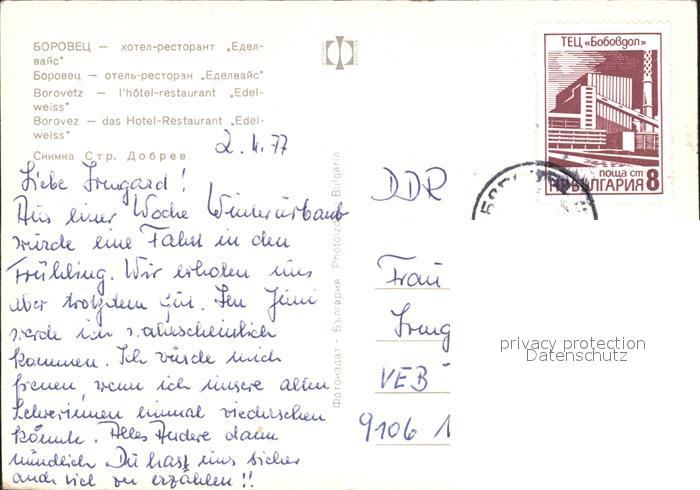 БОРОВЕЦ — хотел-ресторант „Едел-
вайс"
Боровец — отель-ресторан „Еделвайс"
Borovetz — l'hôtel-restaurant „Edel-
weiss"
Borovez — das Hotel-Restaurant „Edel-
weiss"
Снимка Стр. Добрев
2.4.77
Liebe Irmgard!
Aus einer Woche Winterurlaub
würde eine Fahrt in den
Frühling. Wir erholen uns
aber trotzdem gut. Im Juni
werde ich wahrscheinlich
kommen. Ich würde mich
freuen, wenn ich unsere alten
Lehrerinnen einmal wiedersehen
könnte. Alles Andere dann
mündlich. Du hast uns sicher
auch viel zu erzählen!!
Фотоиздат - България Photoizdat - Bulgaria
ТЕЦ „Бобовдол"
поща ст
НРБЪЛГАРИЯ 8
DDR
Frau
Irmg
VEB
9106
privacy protection
Datenschutz